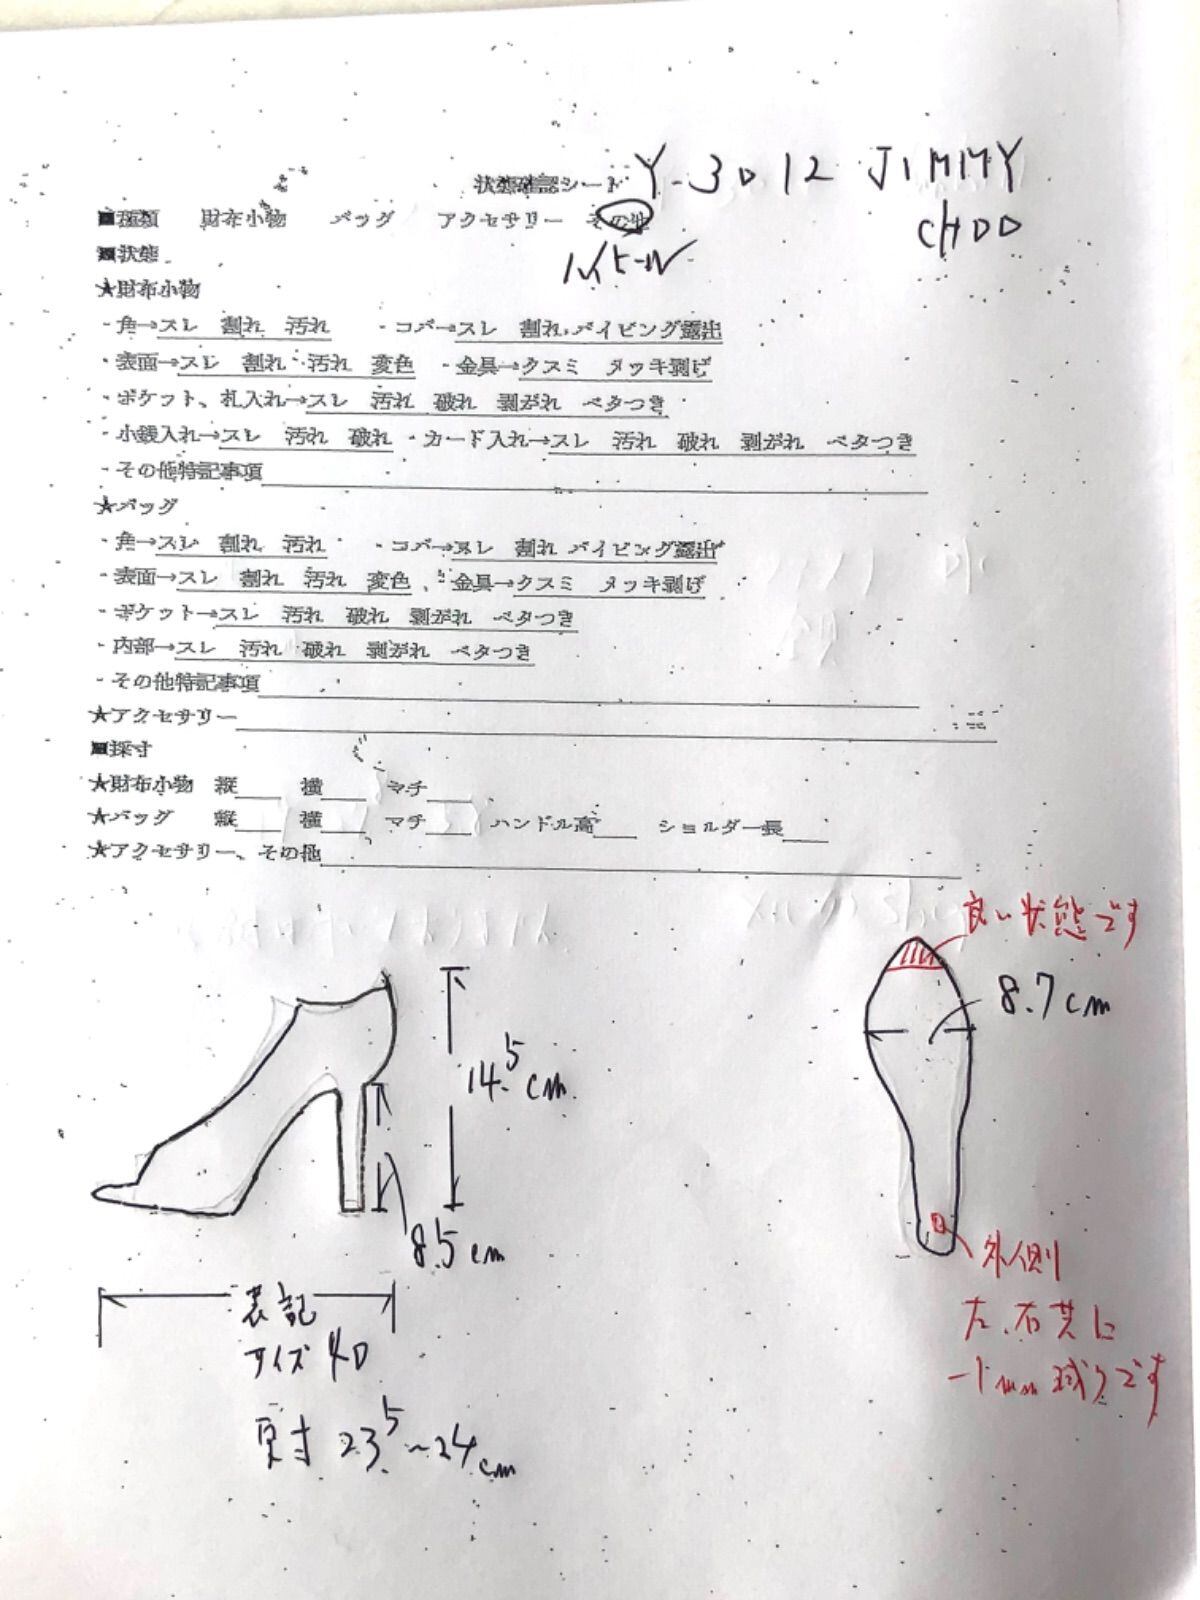 状態確認シート Y-3012 JIMMY
CHOO
■種類 財布小物 バッグ アクセサリー その他
ハイヒール
■状態
★財布小物
・角→スレ 割れ 汚れ ・コバ→スレ 割れ パイピング露出
・表面→スレ 割れ 汚れ 変色 ・金具→クスミ メッキ剥げ
・ポケット、札入れ→スレ 汚れ 破れ 剥がれ ベタつき
・小銭入れ→スレ 汚れ 破れ ・カード入れ→スレ 汚れ 破れ 剥がれ ベタつき
・その他特記事項
★バッグ
・角→スレ 割れ 汚れ ・コバ→スレ 割れ パイピング露出
・表面→スレ 割れ 汚れ 変色 ・金具→クスミ メッキ剥げ
・ポケット→スレ 汚れ 破れ 剥がれ ベタつき
・内部→スレ 汚れ 破れ 剥がれ ベタつき
・その他特記事項
★アクセサリー
■採寸
★財布小物 縦 横 マチ
★バッグ 縦 横 マチ ハンドル高 ショルダー長
★アクセサリー、その他
良い状態です
8.7cm
14.5cm
8.5cm
外側
左、右共に
-1mm減りです
表記
サイズ40
実寸 23.5~24cm